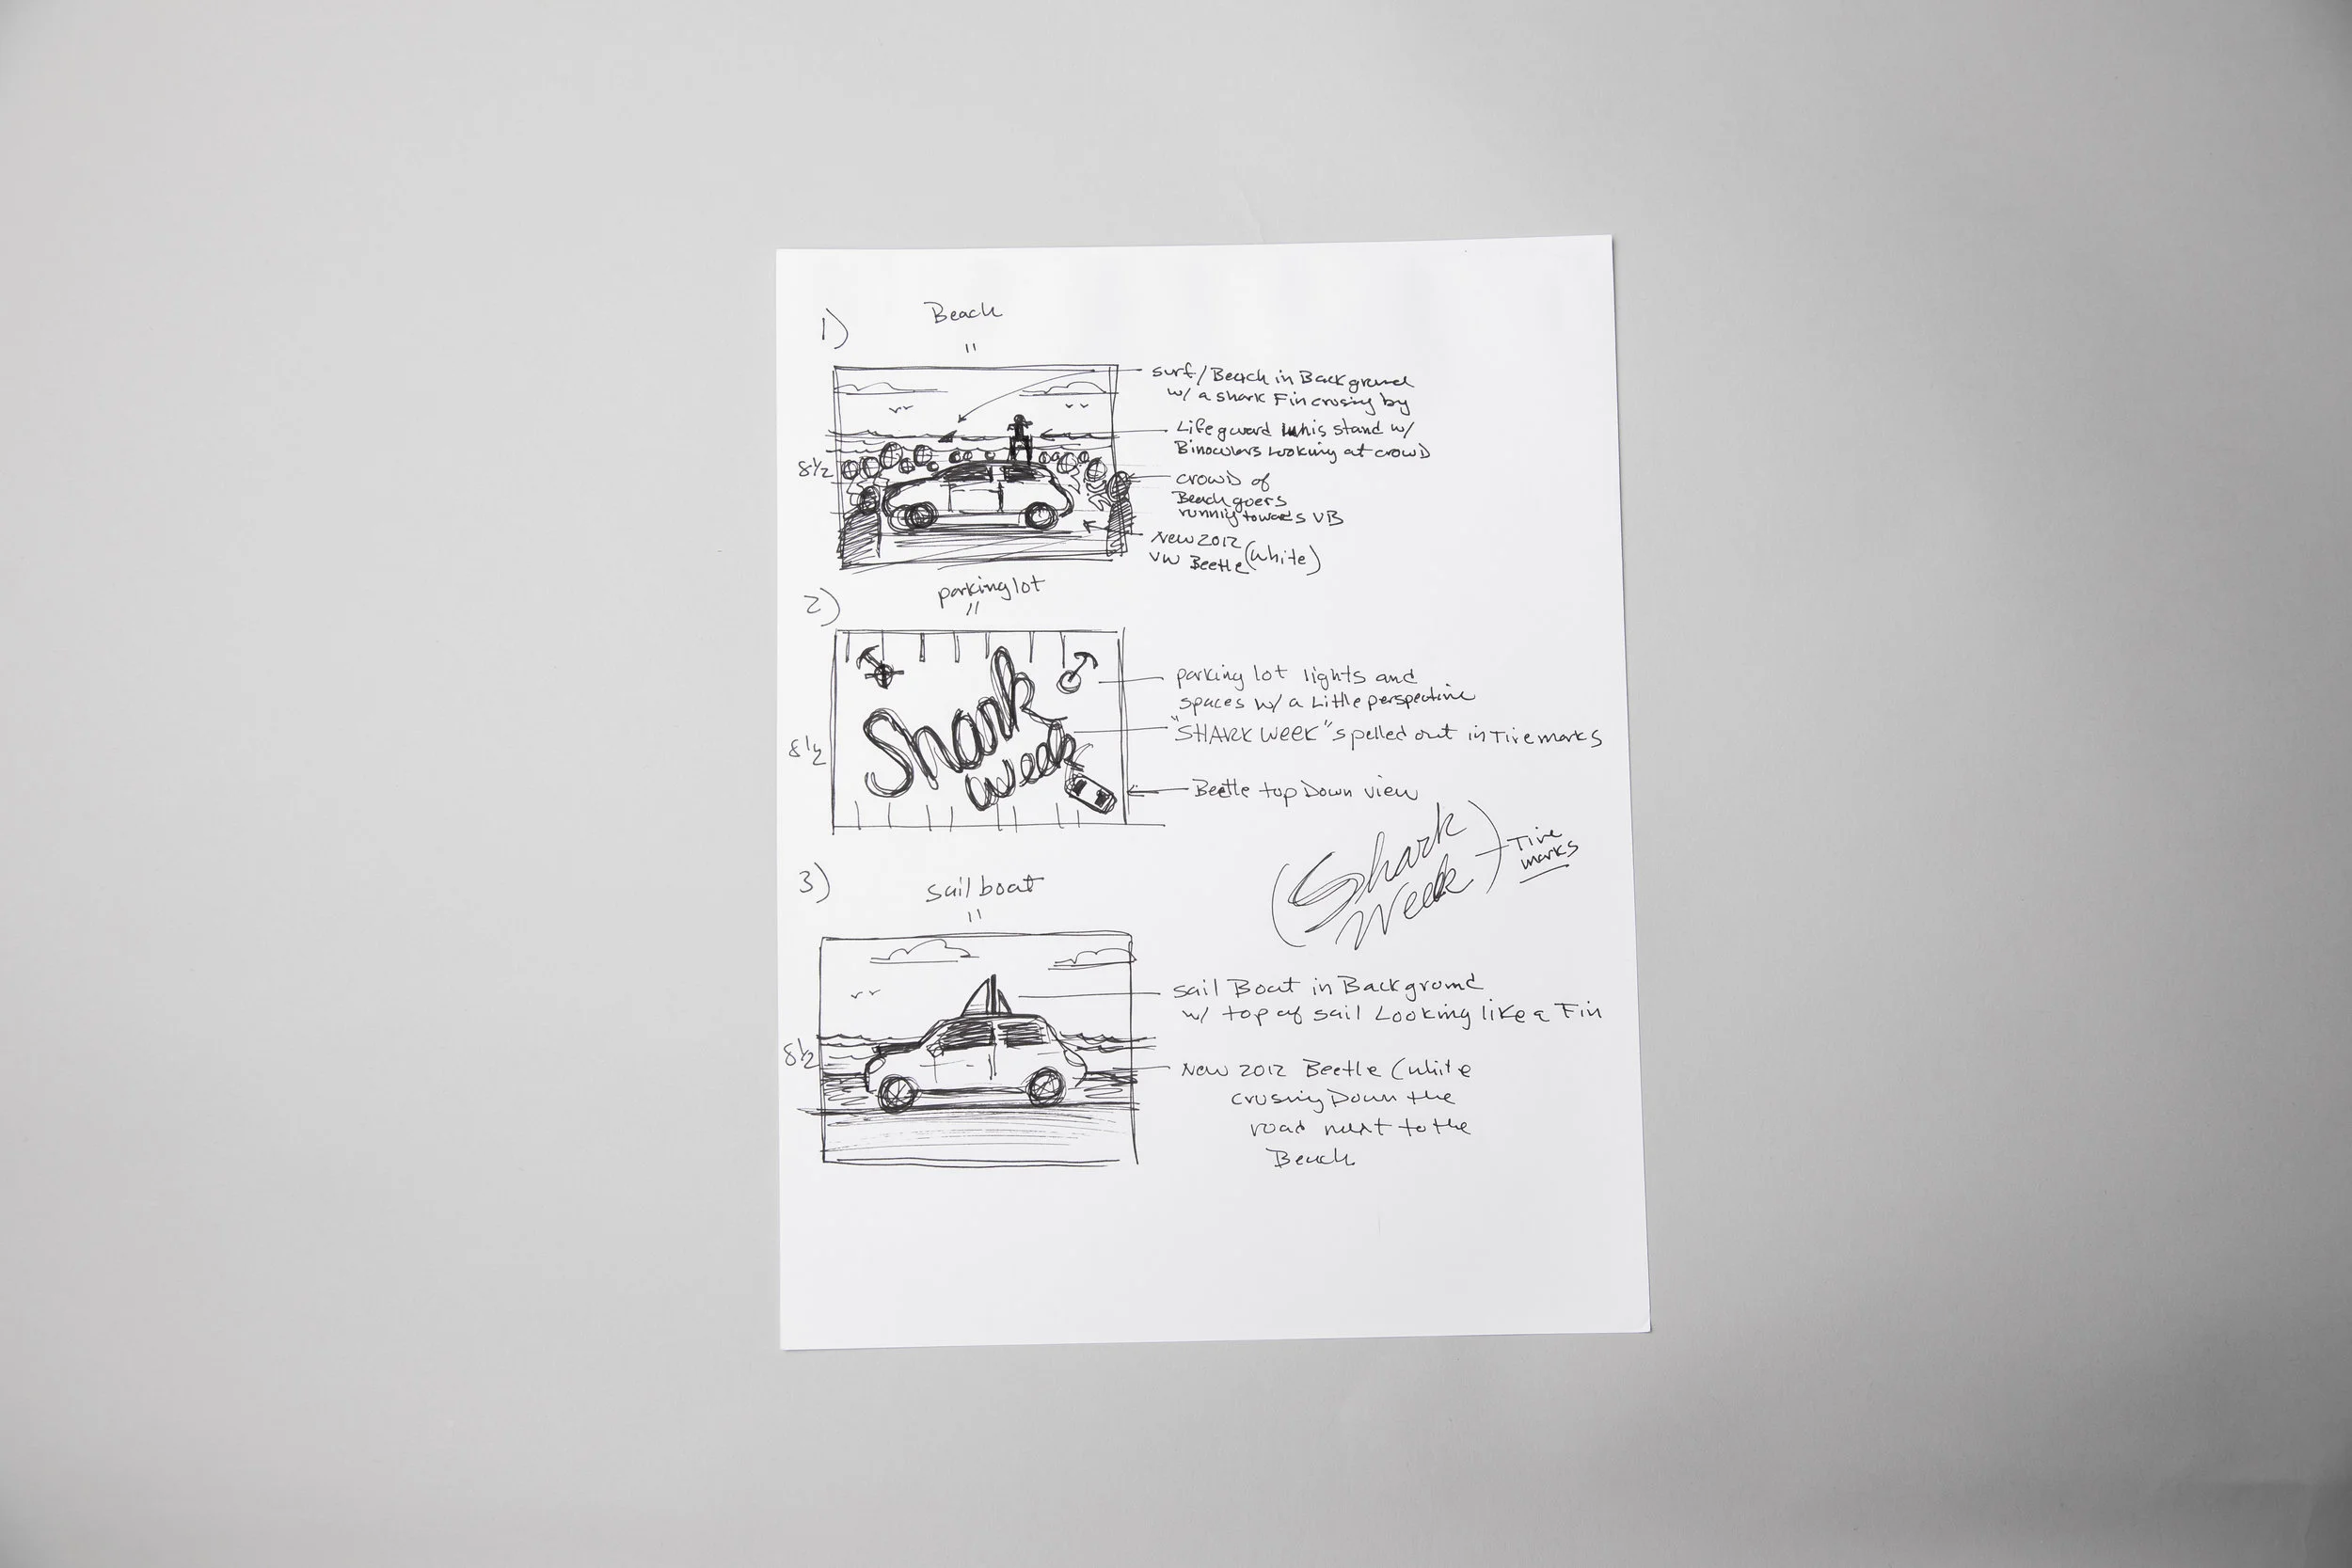 1)
Beach
"
surf/Beach in Background
w/ a shark Fin crusing by
Lifeguard in his stand w/
Binoculars Looking at crowd
8½
crowd of
Beach goers
running towards VB
New 2012
VW Beetle (white)
2)
parking lot
"
parking lot lights and
spaces w/ a Little perspective
Shark
week
"SHARK WEEK" spelled out in Tire marks
8½
Beetle top Down view
(Shark
Week)
Tire
marks
3)
sail boat
"
sail Boat in Background
w/ top of sail Looking like a Fin
8½
New 2012 Beetle (white
crusing Down the
road next to the
Beach